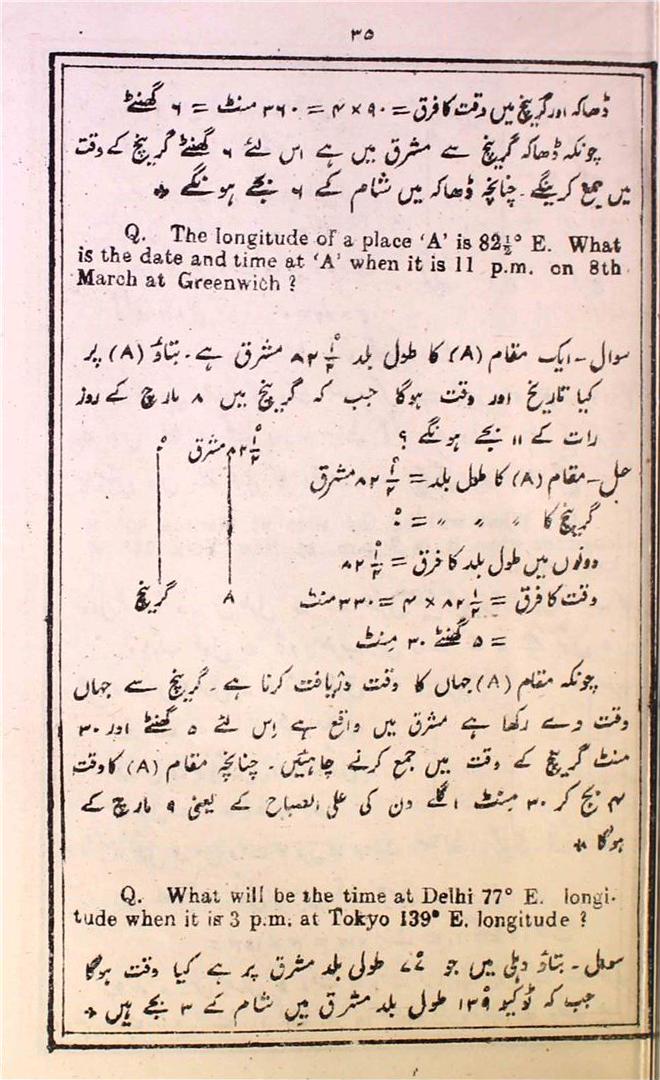 ۳۵
ڈھاکہ اور گرینچ میں وقت کا فرق = ۹۰ × ۴ = ۳۶۰ منٹ = ۶ گھنٹے
چونکہ ڈھاکہ گرینچ سے مشرق میں ہے اس لئے ۶ گھنٹے گرینچ کے وقت
میں جمع کرینگے ۔ چنانچہ ڈھاکہ میں شام کے ۶ بجے ہونگے *
Q. The longitude of a place ‘A’ is 82½° E. What
is the date and time at ‘A’ when it is 11 p.m. on 8th
March at Greenwich ?
سوال ۔ ایک مقام (A) کا طول بلد ½۸۲° مشرق ہے ۔ بتاؤ (A) پر
کیا تاریخ اور وقت ہوگا جب کہ گرینچ میں ۸ مارچ کے روز
رات کے ۱۱ بجے ہونگے ؟
۰° ½۸۲° مشرق
حل ۔ مقام (A) کا طول بلد = ½۸۲° مشرق
گرینچ کا 〃 〃 〃 = ۰°
دونوں میں طول بلد کا فرق = ½۸۲°
گرینچ A
وقت کا فرق = ½۸۲ × ۴ = ۳۳۰ منٹ
= ۵ گھنٹے ۳۰ مِنٹ
چونکہ مقام (A) جہاں کا وقت دریافت کرنا ہے ۔ گرینچ سے جہاں
وقت دے رکھا ہے مشرق میں واقع ہے اِس لئے ۵ گھنٹے اور ۳۰
منٹ گرینچ کے وقت میں جمع کرنے چاہئیں ۔ چنانچہ مقام (A) کا وقت
۴ بج کر ۳۰ مِنٹ اگلے دن کی علی الصباح کے یعنی ۹ مارچ کے
ہوگا *
Q. What will be the time at Delhi 77° E. longi-
tude when it is 3 p.m. at Tokyo 139° E. longitude ?
سوال ۔ بتاؤ دہلی میں جو ۷۷° طولی بلد مشرق پر ہے کیا وقت ہوگا
جب کہ ٹوکیو ۱۳۹° طول بلد مشرق میں شام کے ۳ بجے ہیں *